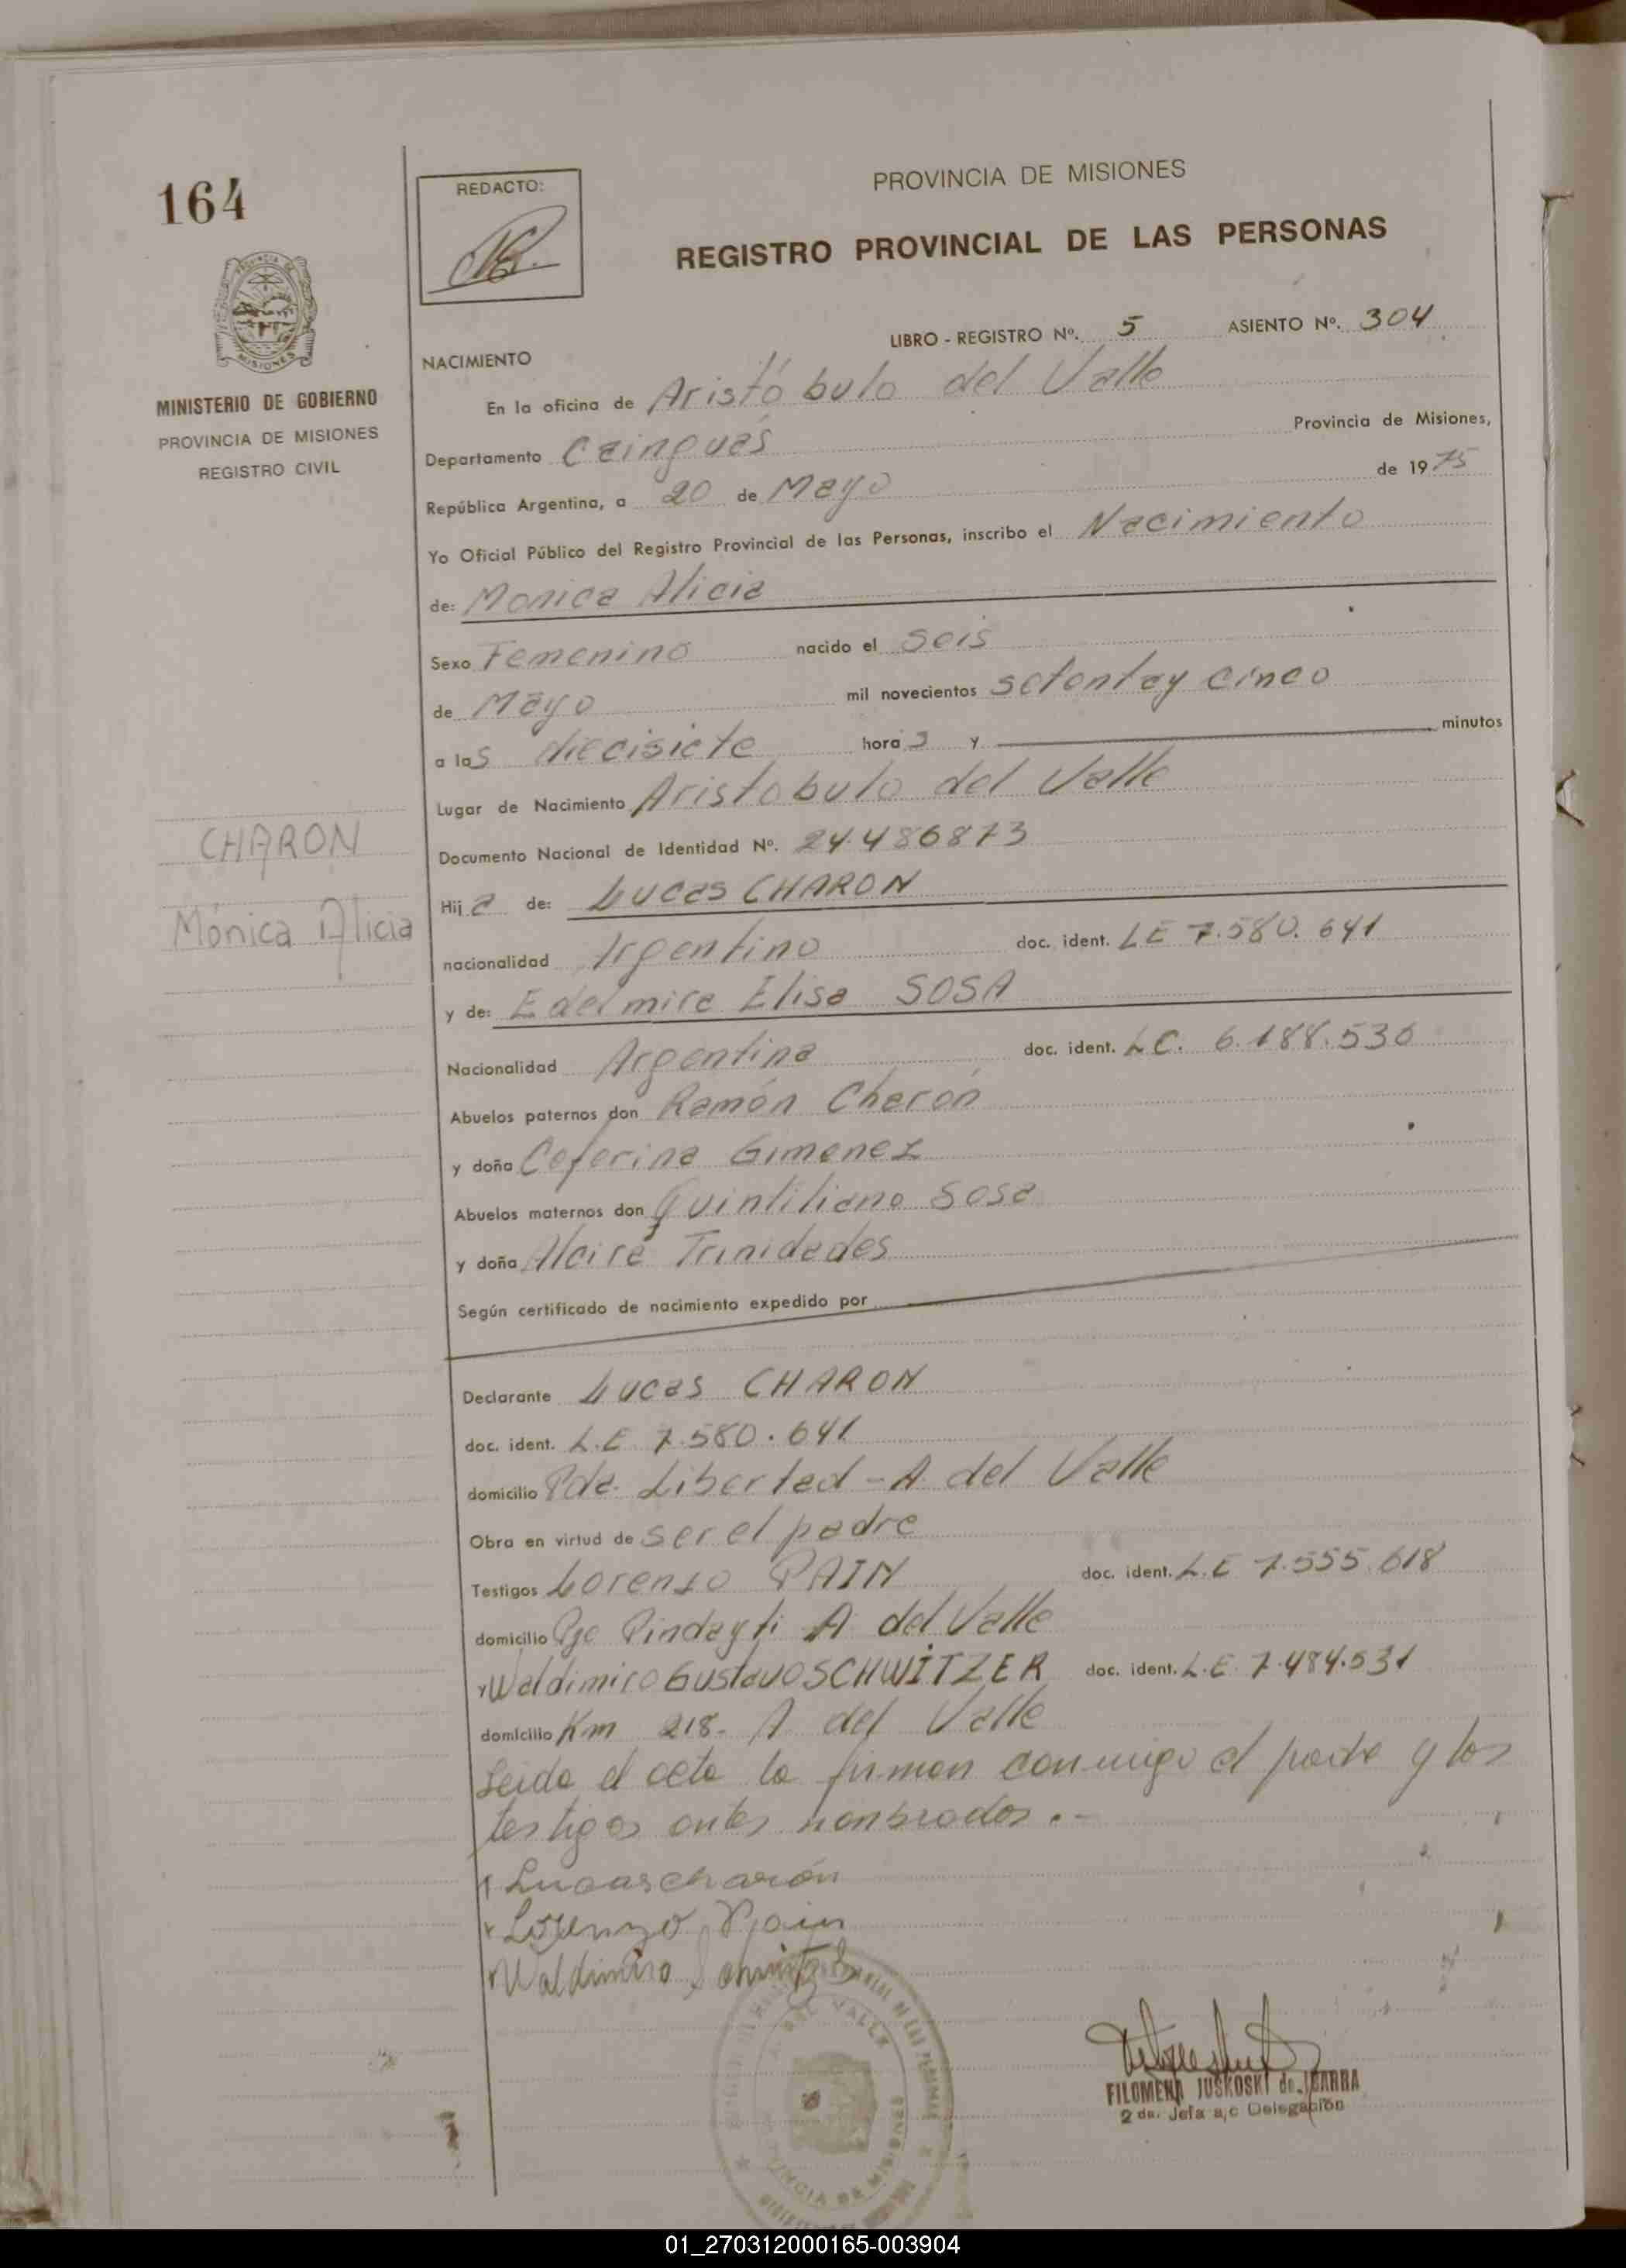 164
REDACTO:
PROVINCIA DE MISIONES
REGISTRO PROVINCIAL DE LAS PERSONAS
MINISTERIO DE GOBIERNO
PROVINCIA DE MISIONES
REGISTRO CIVIL
LIBRO - REGISTRO Nº. 5 ASIENTO Nº. 304
NACIMIENTO
En la oficina de Aristóbulo del Valle
Departamento Cainguás Provincia de Misiones,
República Argentina, a 20 de Mayo de 1975
Yo Oficial Público del Registro Provincial de las Personas, inscribo el Nacimiento
de: Monica Alicia
Sexo Femenino nacido el seis
de Mayo mil novecientos setentay cinco
a las diecisiete horas y minutos
Lugar de Nacimiento Aristobulo del Valle
Documento Nacional de Identidad Nº. 24.486873
CHARON
Mónica Alicia
Hija de: Lucas CHARON
nacionalidad Argentino doc. ident. LE 7.580.641
y de: Edelmira Elisa SOSA
Nacionalidad Argentina doc. ident. LC. 6.188.536
Abuelos paternos don Ramón Charón
y doña Ceferina Gimenez
Abuelos maternos don Quintiliano Sosa
y doña Alcira Trinidades
Según certificado de nacimiento expedido por
Declarante Lucas CHARON
doc. ident. L.E 7.580.641
domicilio Pda. Libertad - A. del Valle
Obra en virtud de ser el padre
Testigos Lorenzo PAIN doc. ident. L.E 7.555.618
domicilio Pje Pindayti A. del Valle
y Waldimiro Gustavo SCHWITZER doc. ident. L.E. 7.484.531
domicilio Km 218- A. del Valle
Leida el acta la firman conmigo el padre y los
testigos antes nombrados.-
Lucas charón
Lorenzo Pain
Waldimiro
FILOMENA JUSKOSKI de IBARRA
2 da. Jefa a/c Delegación
01_270312000165-003904